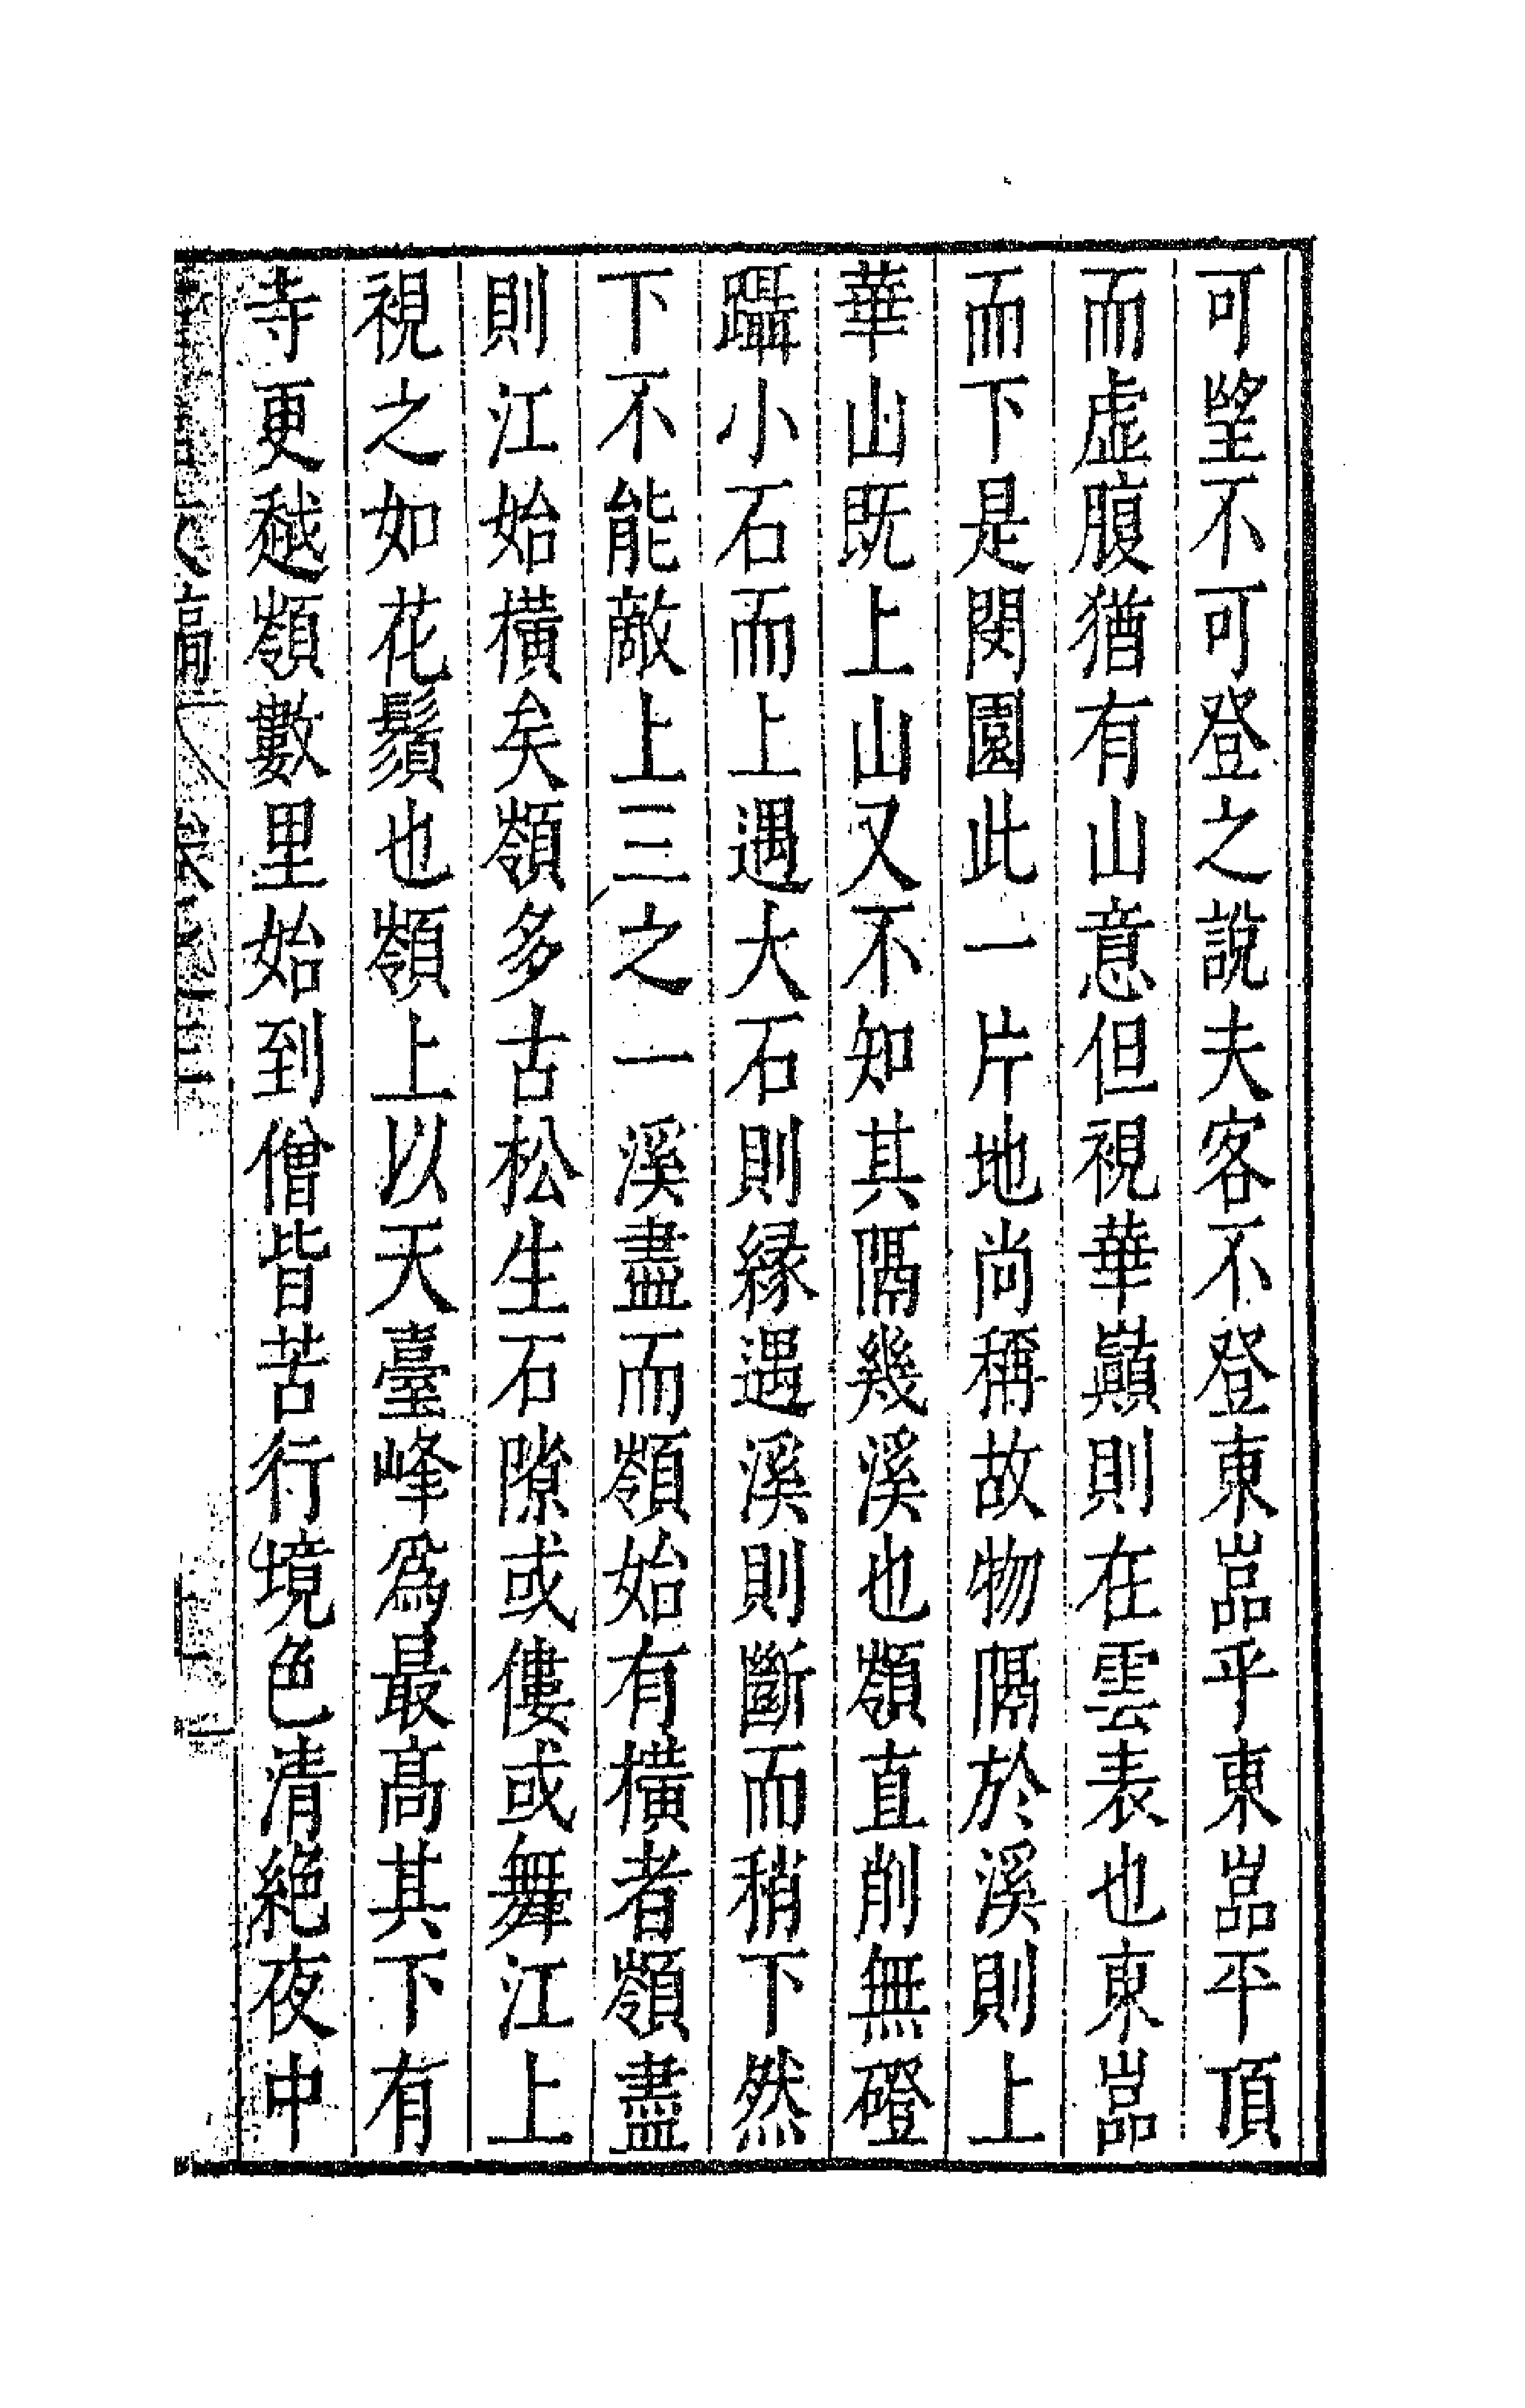 可望不可登之說夫客不登東嵒乎東嵒平頂
而虛腹猶有山意但視華巔則在雲表也東嵒
而下是閔園此一片地尚稱故物隔於溪則上
華山既上山又不知其隔幾溪也嶺直削無磴
躡小石而上遇大石則緣遇溪則斷而稍下然
下不能敵上三之一溪盡而嶺始有橫者嶺盡
則江始橫矣嶺多古松生石隙或僂或舞江上
視之如花鬚也嶺上以天臺峰爲最高其下有
寺更越嶺數里始到僧皆苦行境色清絕夜中